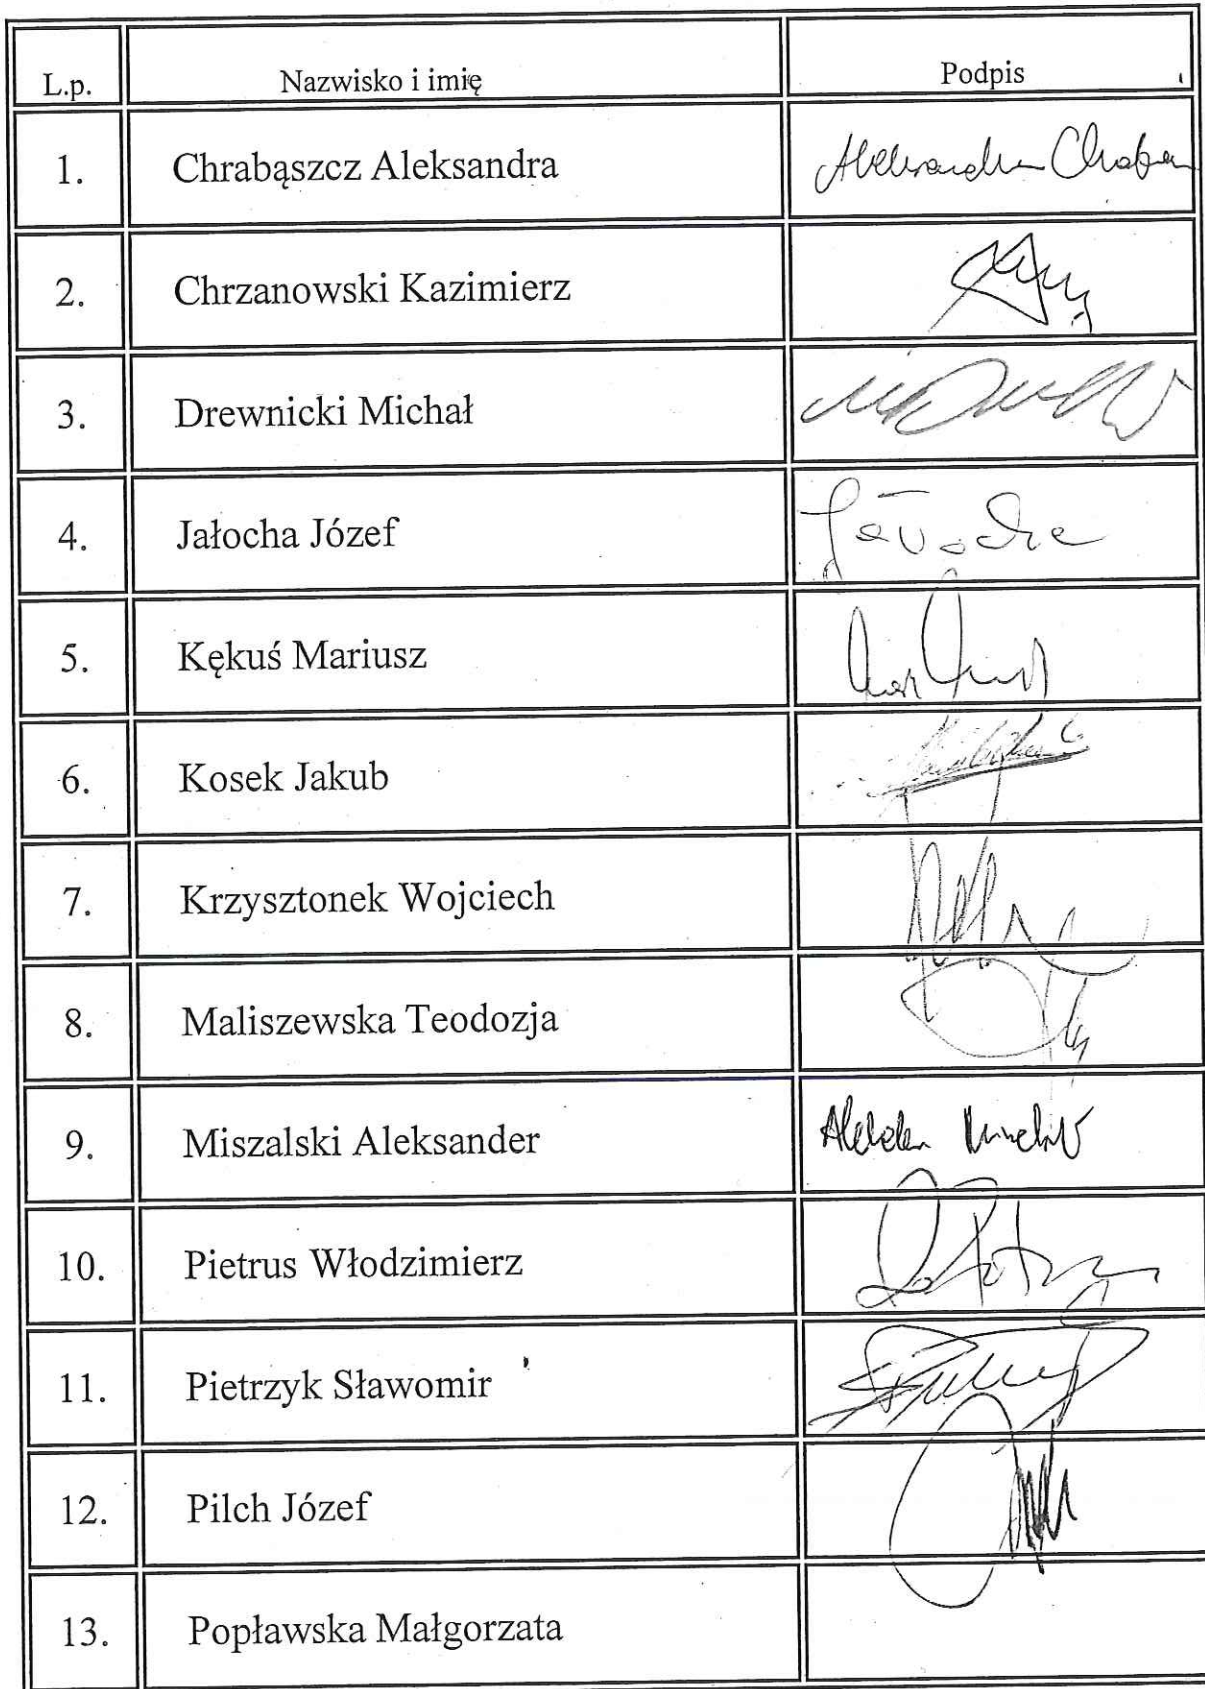 L.p. Nazwisko i imię Podpis
1. Chrabąszcz Aleksandra
2. Chrzanowski Kazimierz
3. Drewnicki Michał
4. Jałocha Józef
5. Kękuś Mariusz
6. Kosek Jakub
7. Krzysztonek Wojciech
8. Maliszewska Teodozja
9. Miszalski Aleksander
10. Pietrus Włodzimierz
11. Pietrzyk Sławomir
12. Pilch Józef
13. Popławska Małgorzata